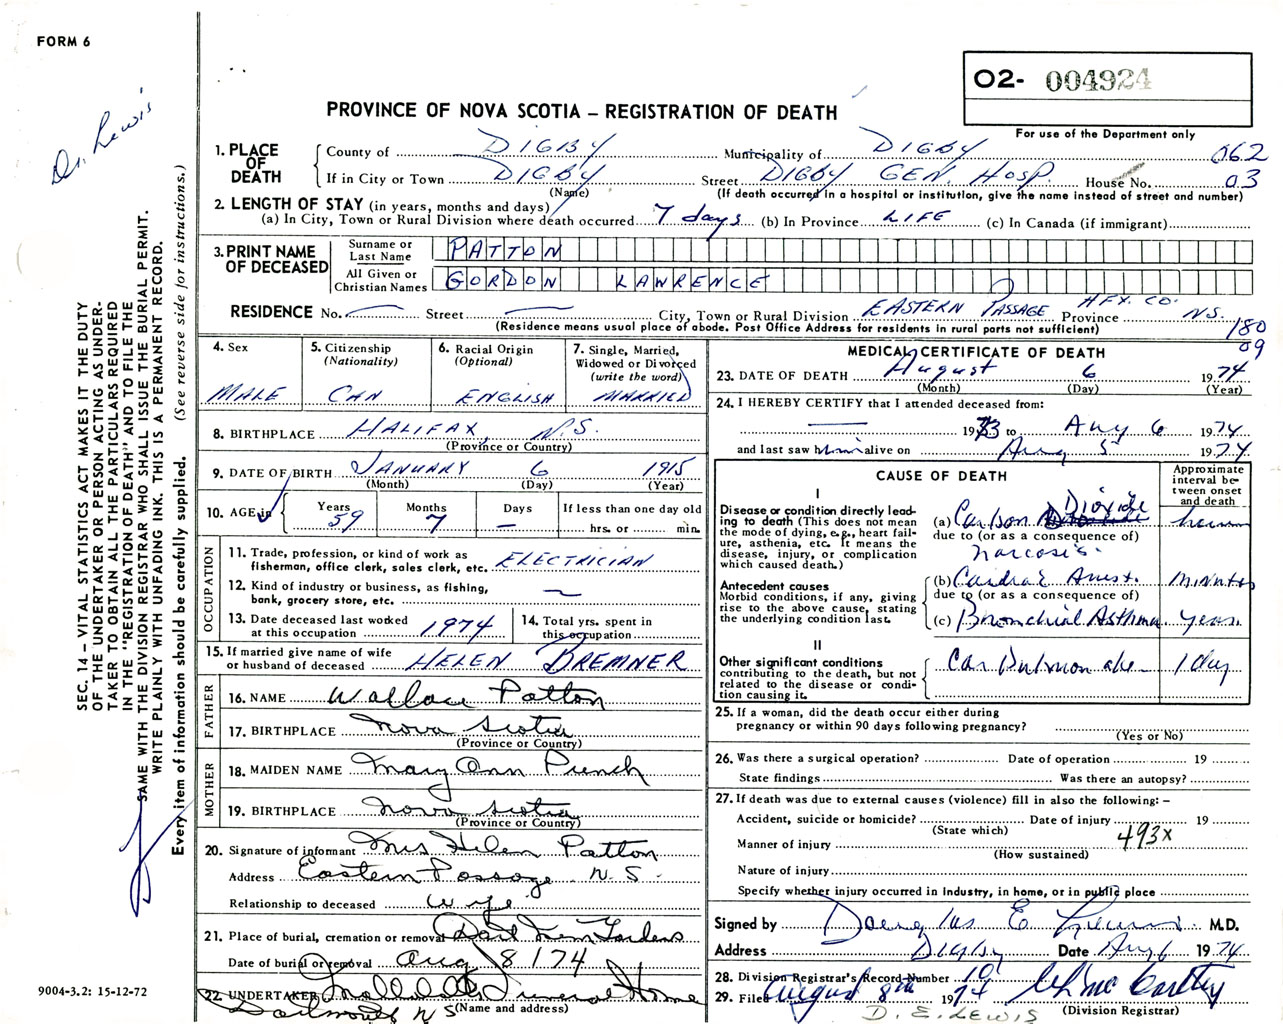 FORM 6
Dr. Lewis
O2- 004924
For use of the Department only
PROVINCE OF NOVA SCOTIA – REGISTRATION OF DEATH
1. PLACE OF DEATH
County of DIGBY Municipality of DIGBY 062
If in City or Town DIGBY Street DIGBY GEN. HOSP. House No. 03
(Name) (If death occurred in a hospital or institution, give the name instead of street and number)
2. LENGTH OF STAY (in years, months and days)
(a) In City, Town or Rural Division where death occurred 7 days (b) In Province LIFE (c) In Canada (if immigrant)
3. PRINT NAME OF DECEASED
Surname or Last Name PATTON
All Given or Christian Names GORDON LAWRENCE
RESIDENCE No. — Street — City, Town or Rural Division EASTERN PASSAGE HFX. CO. Province N.S.
(Residence means usual place of abode. Post Office Address for residents in rural parts not sufficient)
180
09
4. Sex MALE
5. Citizenship (Nationality) CAN
6. Racial Origin (Optional) ENGLISH
7. Single, Married, Widowed or Divorced (write the word) MARRIED
8. BIRTHPLACE HALIFAX, N.S.
(Province or Country)
9. DATE OF BIRTH JANUARY 6 1915
(Month) (Day) (Year)
10. AGE in Years 59 Months 7 Days – If less than one day old
hrs. or min.
OCCUPATION
11. Trade, profession, or kind of work as fisherman, office clerk, sales clerk, etc. ELECTRICIAN
12. Kind of industry or business, as fishing, bank, grocery store, etc. —
13. Date deceased last worked at this occupation 1974
14. Total yrs. spent in this occupation
15. If married give name of wife or husband of deceased HELEN BREMNER
FATHER
16. NAME Wallace Patton
17. BIRTHPLACE Nova Scotia
(Province or Country)
MOTHER
18. MAIDEN NAME Mary Ann Punch
19. BIRTHPLACE Nova Scotia
(Province or Country)
20. Signature of informant Mrs Helen Patton
Address Eastern Passage N.S.
Relationship to deceased wife
21. Place of burial, cremation or removal Dart Mem Gardens
Date of burial or removal Aug 8/74
22. UNDERTAKER Funeral Home
Dartmouth N S (Name and address)
MEDICAL CERTIFICATE OF DEATH
23. DATE OF DEATH August 6 1974
(Month) (Day) (Year)
24. I HEREBY CERTIFY that I attended deceased from:
— 1973 to Aug 6 1974
and last saw him alive on Aug 5 1974
CAUSE OF DEATH
Approximate interval between onset and death
I
Disease or condition directly leading to death (This does not mean the mode of dying, e.g., heart failure, asthenia, etc. It means the disease, injury, or complication which caused death.)
(a) Carbon Dioxide
due to (or as a consequence of)
Narcosis.
Antecedent causes
Morbid conditions, if any, giving rise to the above cause, stating the underlying condition last.
(b) Cardiac Arrest. Minutes
due to (or as a consequence of)
(c) Bronchial Asthma years.
II
Other significant conditions contributing to the death, but not related to the disease or condition causing it.
Cor Pulmonale 1 day
25. If a woman, did the death occur either during pregnancy or within 90 days following pregnancy?
(Yes or No)
26. Was there a surgical operation? Date of operation 19
State findings Was there an autopsy?
27. If death was due to external causes (violence) fill in also the following: –
Accident, suicide or homicide? Date of injury 19
(State which)
Manner of injury 493X
(How sustained)
Nature of injury
Specify whether injury occurred in industry, in home, or in public place
Signed by Douglas E Lewis M.D.
Address Digby Date Aug 6 1974
28. Division Registrar's Record Number 10
29. Filed August 8th 1974
(Division Registrar)
D. E. LEWIS
SEC. 14 – VITAL STATISTICS ACT MAKES IT THE DUTY
OF THE UNDERTAKER OR PERSON ACTING AS UNDER-
TAKER TO OBTAIN ALL THE PARTICULARS REQUIRED
IN THE "REGISTRATION OF DEATH" AND TO FILE THE
SAME WITH THE DIVISION REGISTRAR WHO SHALL ISSUE THE BURIAL PERMIT.
WRITE PLAINLY WITH UNFADING INK. THIS IS A PERMANENT RECORD.
Every item of information should be carefully supplied. (See reverse side for instructions.)
9004-3.2: 15-12-72